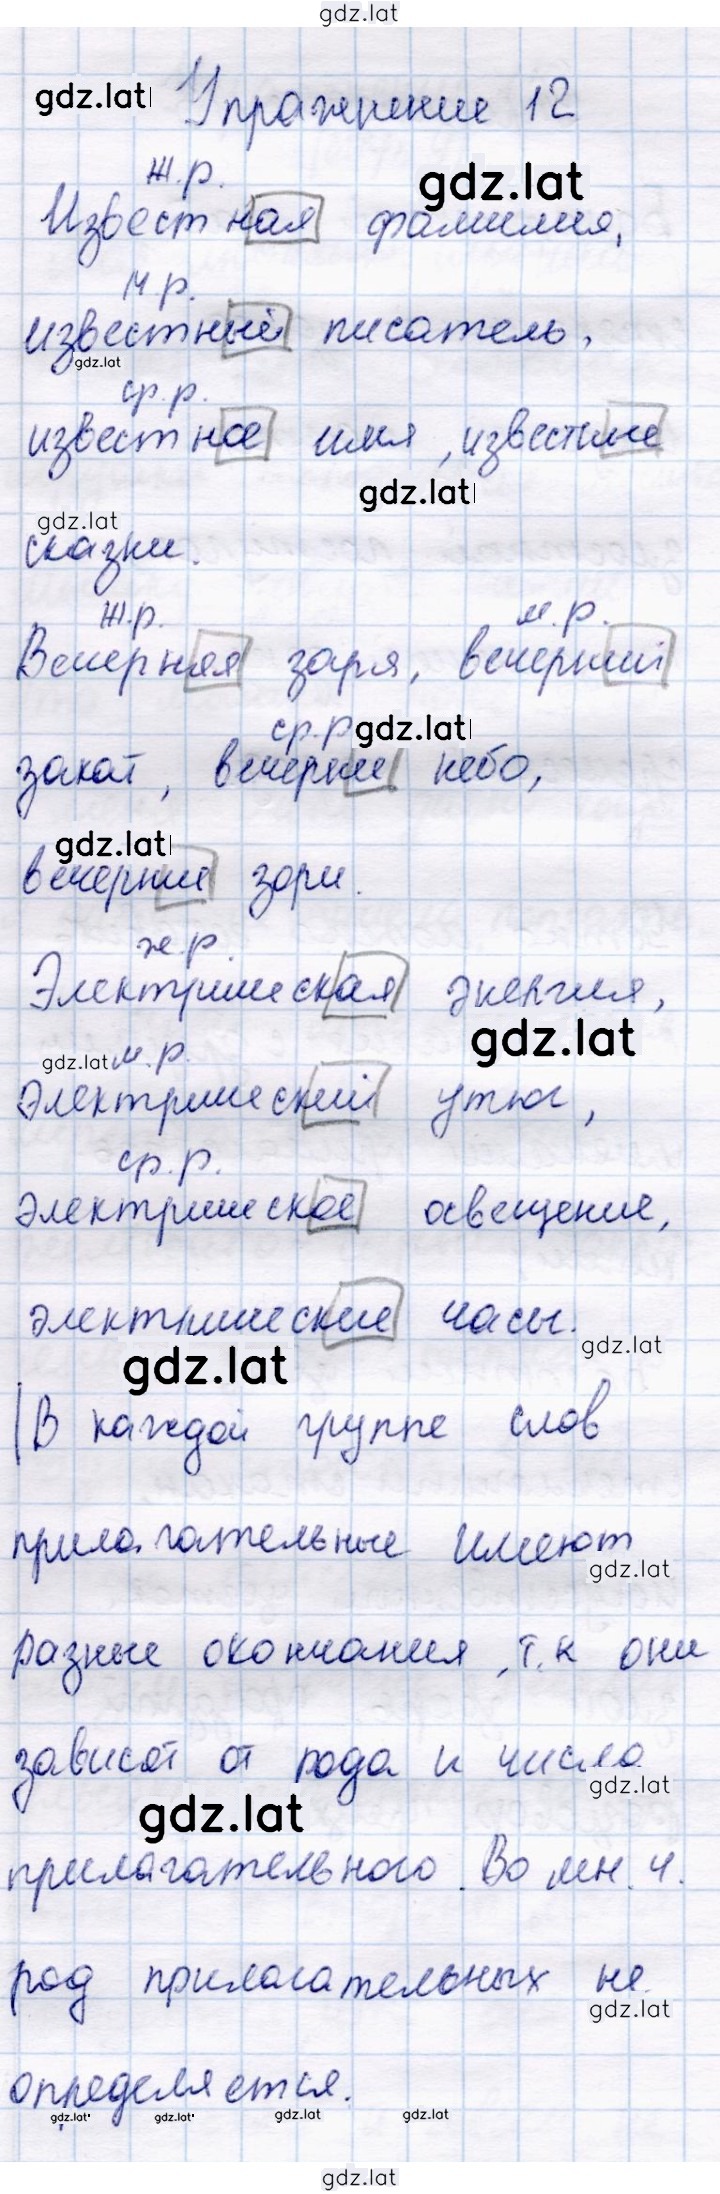 gdz.lat
gdz.lat
Упражнение 12
ж.р.
gdz.lat
Известная фамилия,
м.р.
известный писатель,
gdz.lat
ср.р.
известное имя, известные
gdz.lat
gdz.lat
сказки.
ж.р. м.р.
Вечерняя заря, вечерний
ср.р gdz.lat
закат, вечернее небо,
gdz.lat
вечерние зори.
ж.р.
Электрическая энергия,
gdz.lat
gdz.lat м.р.
электрический утюг,
ср.р.
электрическое освещение,
электрические часы.
gdz.lat
gdz.lat
В каждой группе слов
прилагательные имеют
gdz.lat
разные окончания, т.к они
зависят от рода и числа
gdz.lat
gdz.lat
прилагательного. Во мн. ч.
род прилагательных не
gdz.lat
определяется.
gdz.lat gdz.lat gdz.lat gdz.lat
gdz.lat